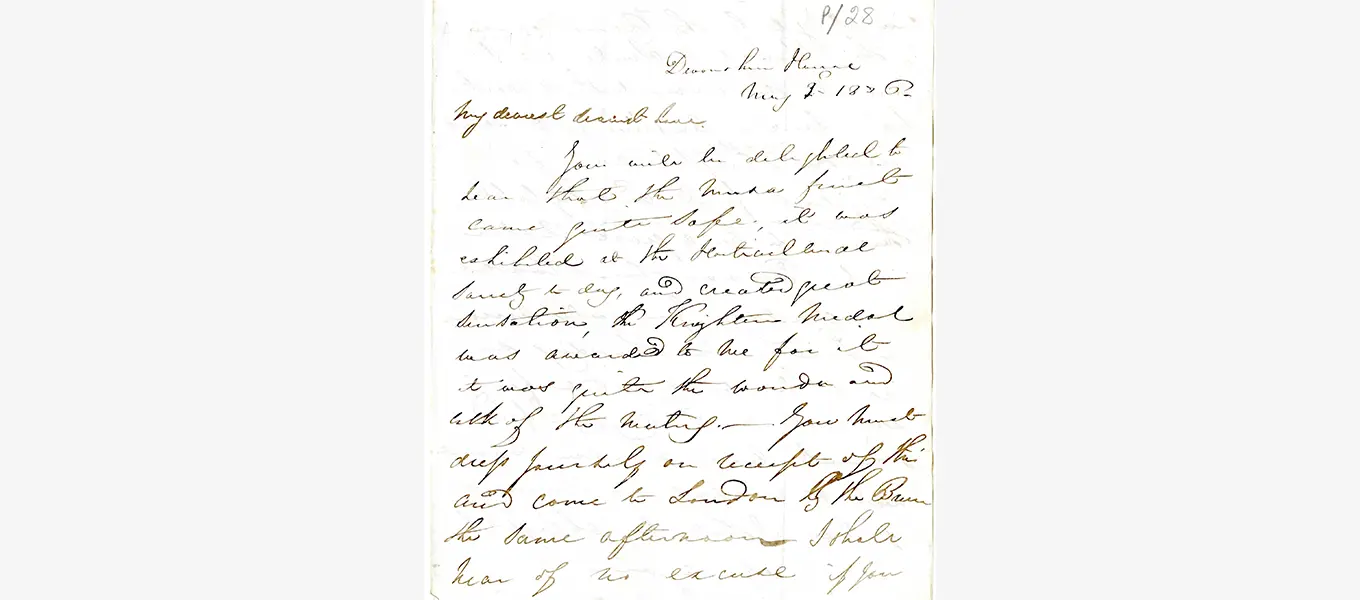 P/28
Devonshire House
May 3 1836
My dearest dearest love.
You will be delighted to
hear that the Musa fruit
came quite safe, it was
exhibited at the Horticultural
Society to day, and created great
sensation, the Knightian Medal
was awarded to me for it
it was quite the wonder and
talk of the meeting. — You must
dress yourself on receipt of this
and come to London by the
the same afternoon I shall
hear of no excuse if you